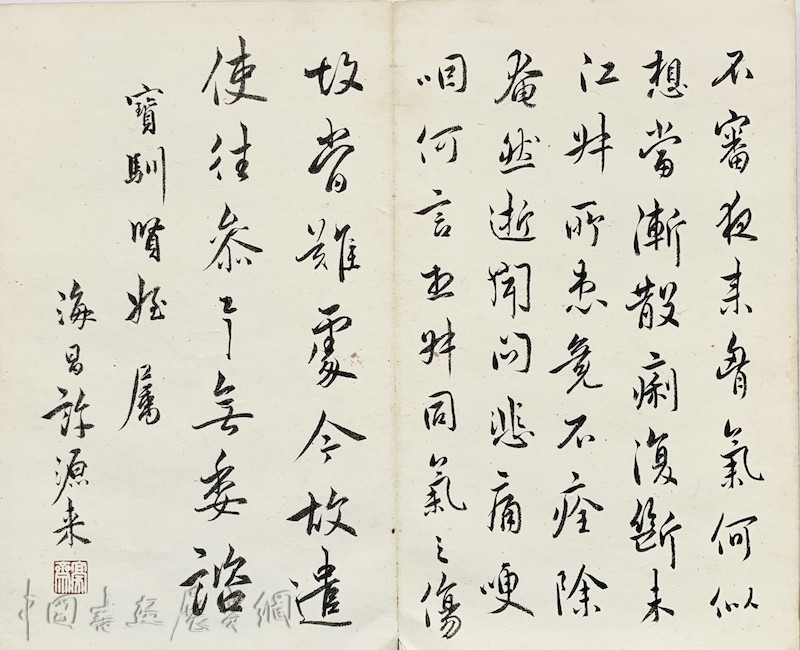 不審夜來胷氣何似
想當漸散痢復斷未
江妹所患竟不痊除
奄然逝聞問悲痛哽
咽何言五妹同氣之傷
故當難處今故遣
使往參無委諮
寶馴賢姪屬
海昌許源来